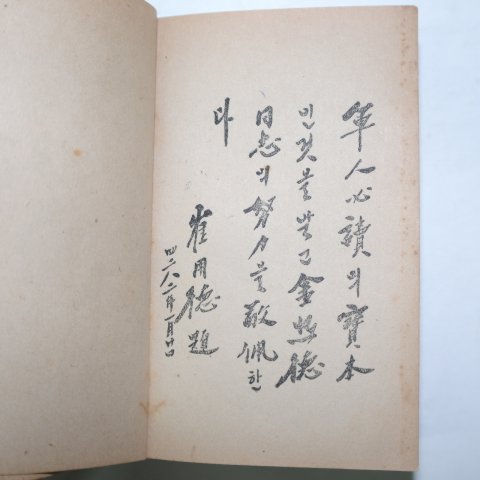 軍人必讀의寶本
인것을말고金熙德
同志의努力을敬佩한
다
崔用德題
四二八二年一月廿日